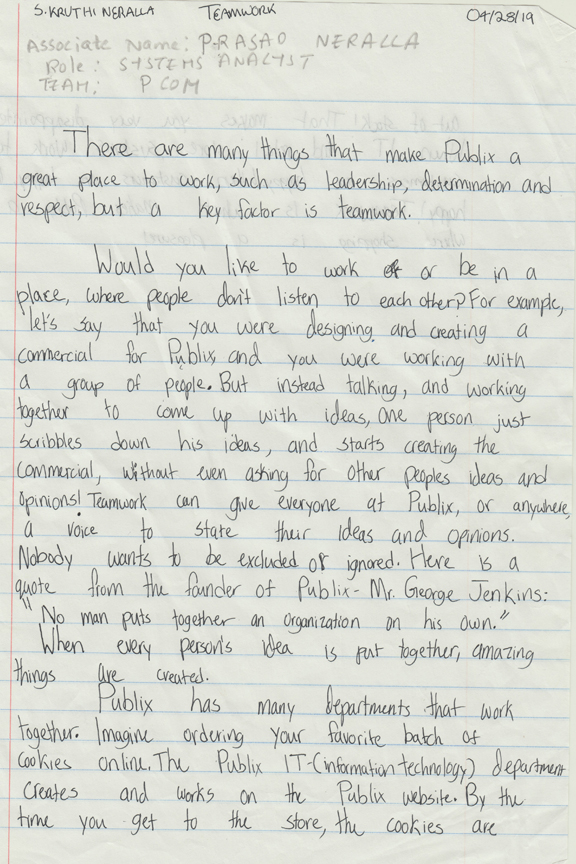 S. KRUTHI NERALLA TEAMWORK 04/28/19
Associate Name: PRASAD NERALLA
Role: SYSTEMS ANALYST
TEAM: P COM
There are many things that make Publix a
great place to work, such as leadership, determination and
respect, but a key factor is teamwork.
Would you like to work or be in a
place, where people don't listen to each other? For example,
let's say that you were designing and creating a
commercial for Publix and you were working with
a group of people. But instead talking, and working
together to come up with ideas, one person just
scribbles down his ideas, and starts creating the
commercial, without even asking for other peoples ideas and
opinions! Teamwork can give everyone at Publix, or anywhere,
a voice to state their ideas and opinions.
Nobody wants to be excluded or ignored. Here is a
quote from the founder of Publix- Mr. George Jenkins:
"No man puts together an organization on his own."
When every person's idea is put together, amazing
things are created.
Publix has many departments that work
together. Imagine ordering your favorite batch of
cookies online. The Publix IT-(information technology) department
creates and works on the Publix website. By the
time you get to the store, the cookies are